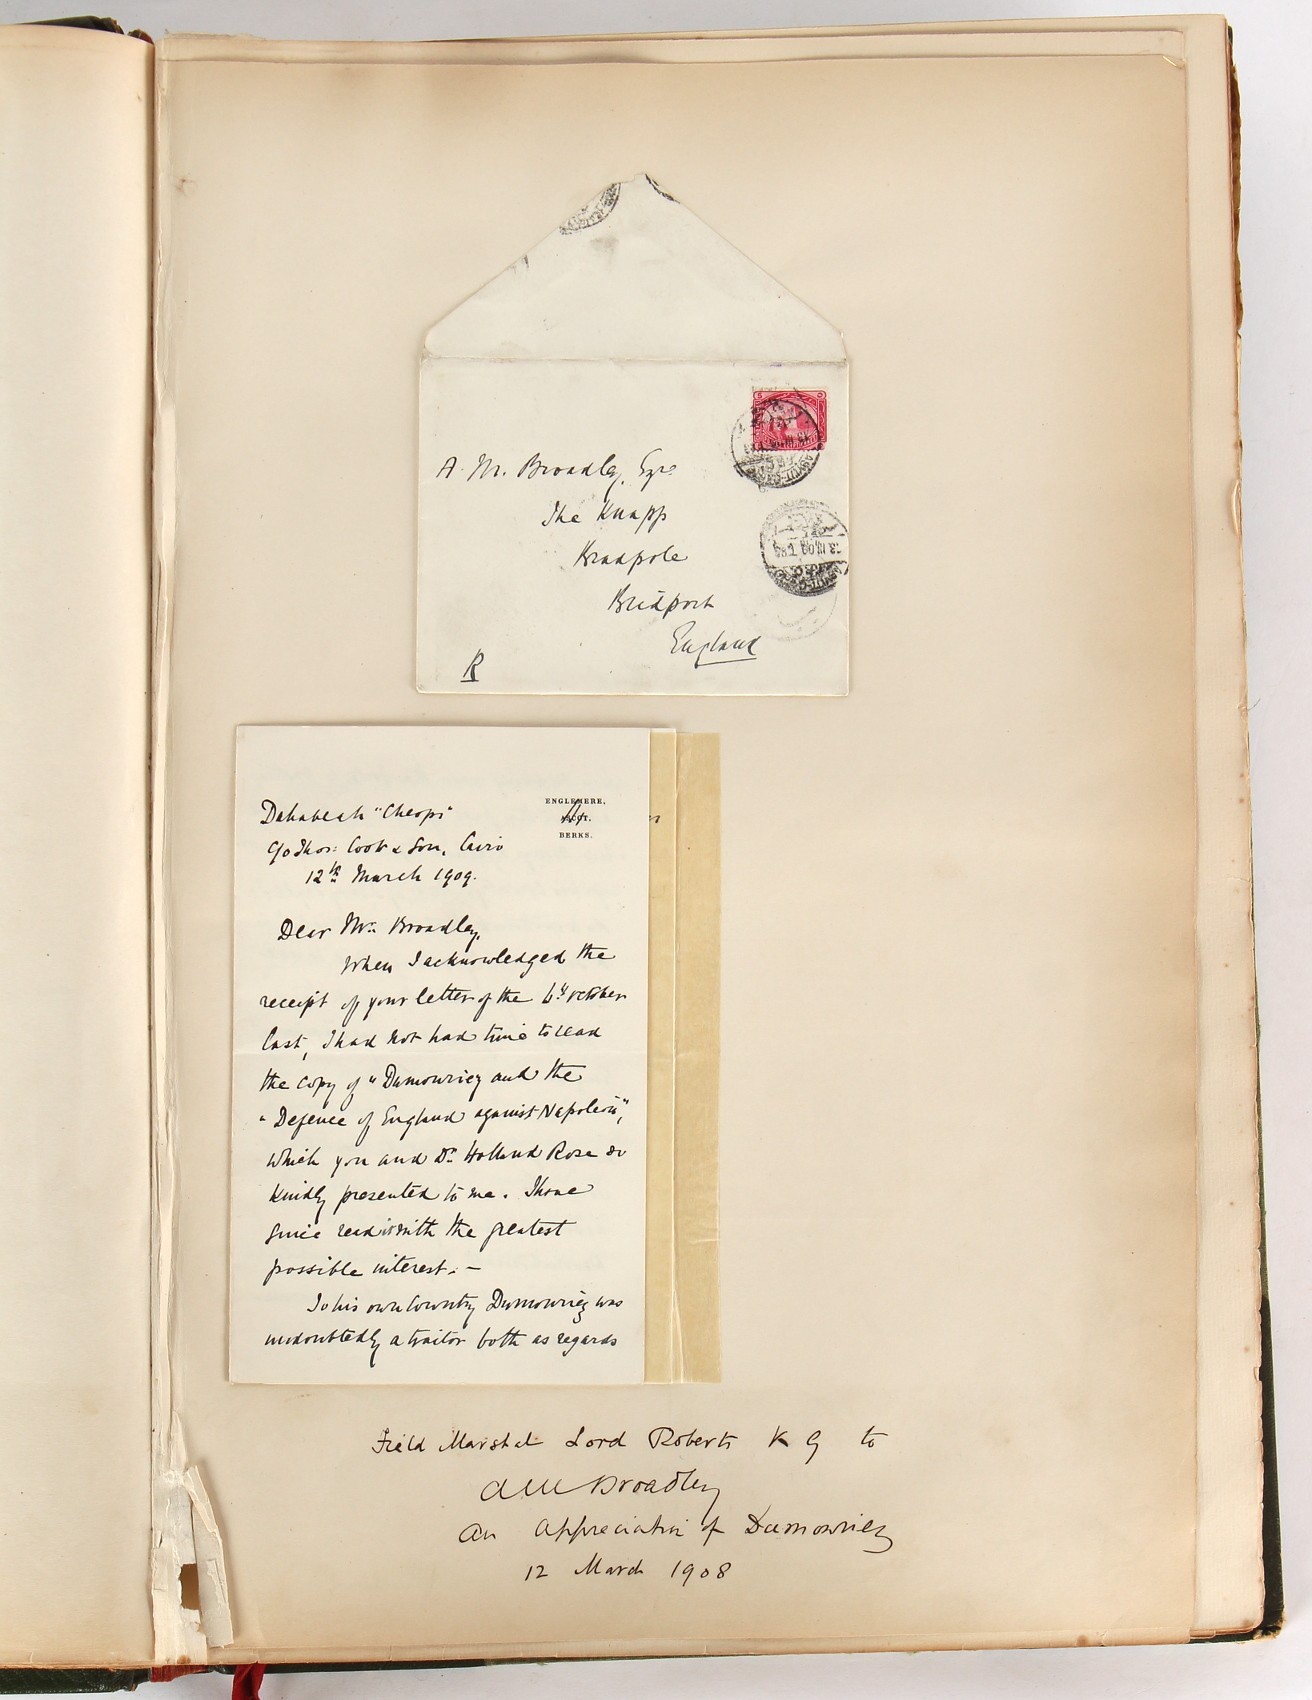 A. M. Broadley, Esqre
The Knapp
Bradpole
Bridport
England
R
ENGLEMERE,
ASCOT.
BERKS.
Dahabeah "Cheops"
c/o Thos: Cook & Son, Cairo
12th March 1909.
Dear Mr. Broadley,
When I acknowledged the
receipt of your letter of the 6th October
last, I had not had time to read
the copy of "Dumouriez and the
"Defence of England against Napoleon",
which you and Dr. Holland Rose so
kindly presented to me. I have
since read it with the greatest
possible interest. —
To his own Country Dumouriez was
undoubtedly a traitor both as regards
Field Marshal Lord Roberts K G to
A M Broadley
An Appreciation of Dumouriez
12 March 1908